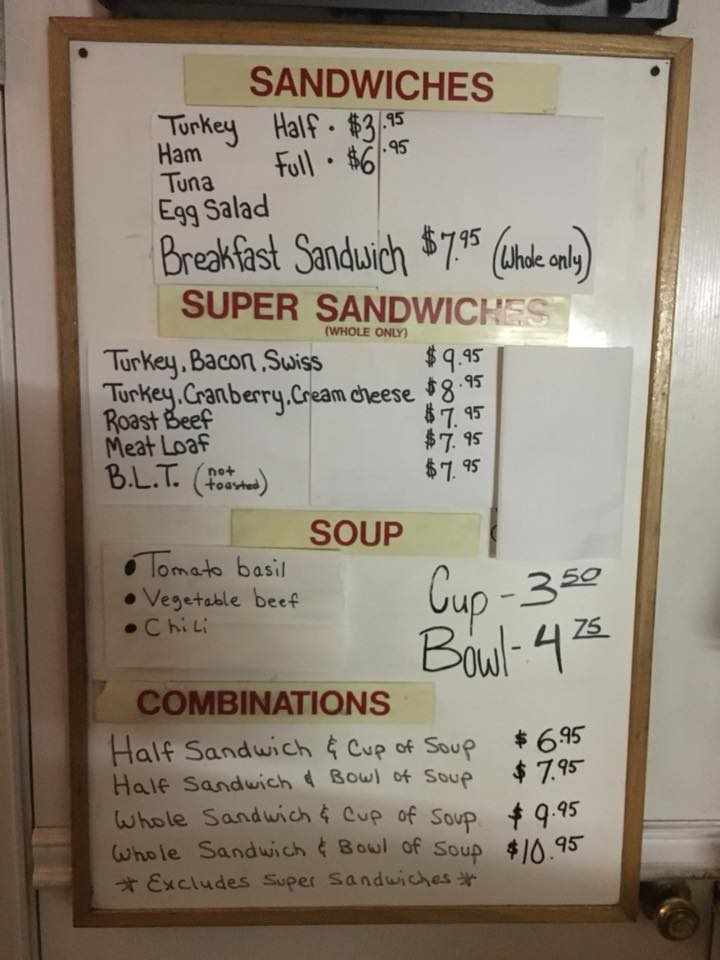 SANDWICHES
Turkey Half · $3.95
Ham Full · $6.95
Tuna
Egg Salad
Breakfast Sandwich $7.95 (Whole only)
SUPER SANDWICHES
(WHOLE ONLY)
Turkey, Bacon, Swiss $9.95
Turkey, Cranberry, Cream cheese $8.95
Roast Beef $7.95
Meat Loaf $7.95
B.L.T. (not toasted) $7.95
SOUP
• Tomato basil
• Vegetable beef
• Chili
Cup - 3 50
Bowl - 4 75
COMBINATIONS
Half Sandwich & Cup of Soup $6.95
Half Sandwich & Bowl of Soup $7.95
Whole Sandwich & Cup of Soup $9.95
Whole Sandwich & Bowl of Soup $10.95
* Excludes Super Sandwiches *